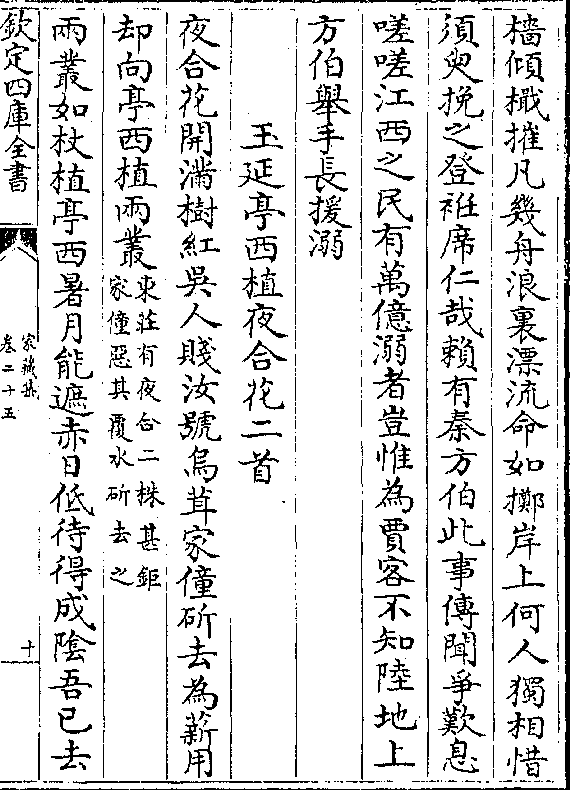 檣傾檝摧凡幾舟浪裏漂流命如擲岸上何人獨相惜
須臾挽之登袵席仁哉賴有秦方伯此事傳聞爭歎息
嗟嗟江西之民有萬億溺者豈惟為賈客不知陸地上
方伯舉手長援溺
玉延亭西植夜合花二首
夜合花開滿樹紅吳人賤汝號烏茸家僮斫去為薪用
却向亭西植兩叢東莊有夜合二株甚鉅
家僮惡其覆水斫去之
兩叢如杖植亭西暑月能遮赤日低待得成陰吾已去
欽定四庫全書
家藏集
卷二十五
十